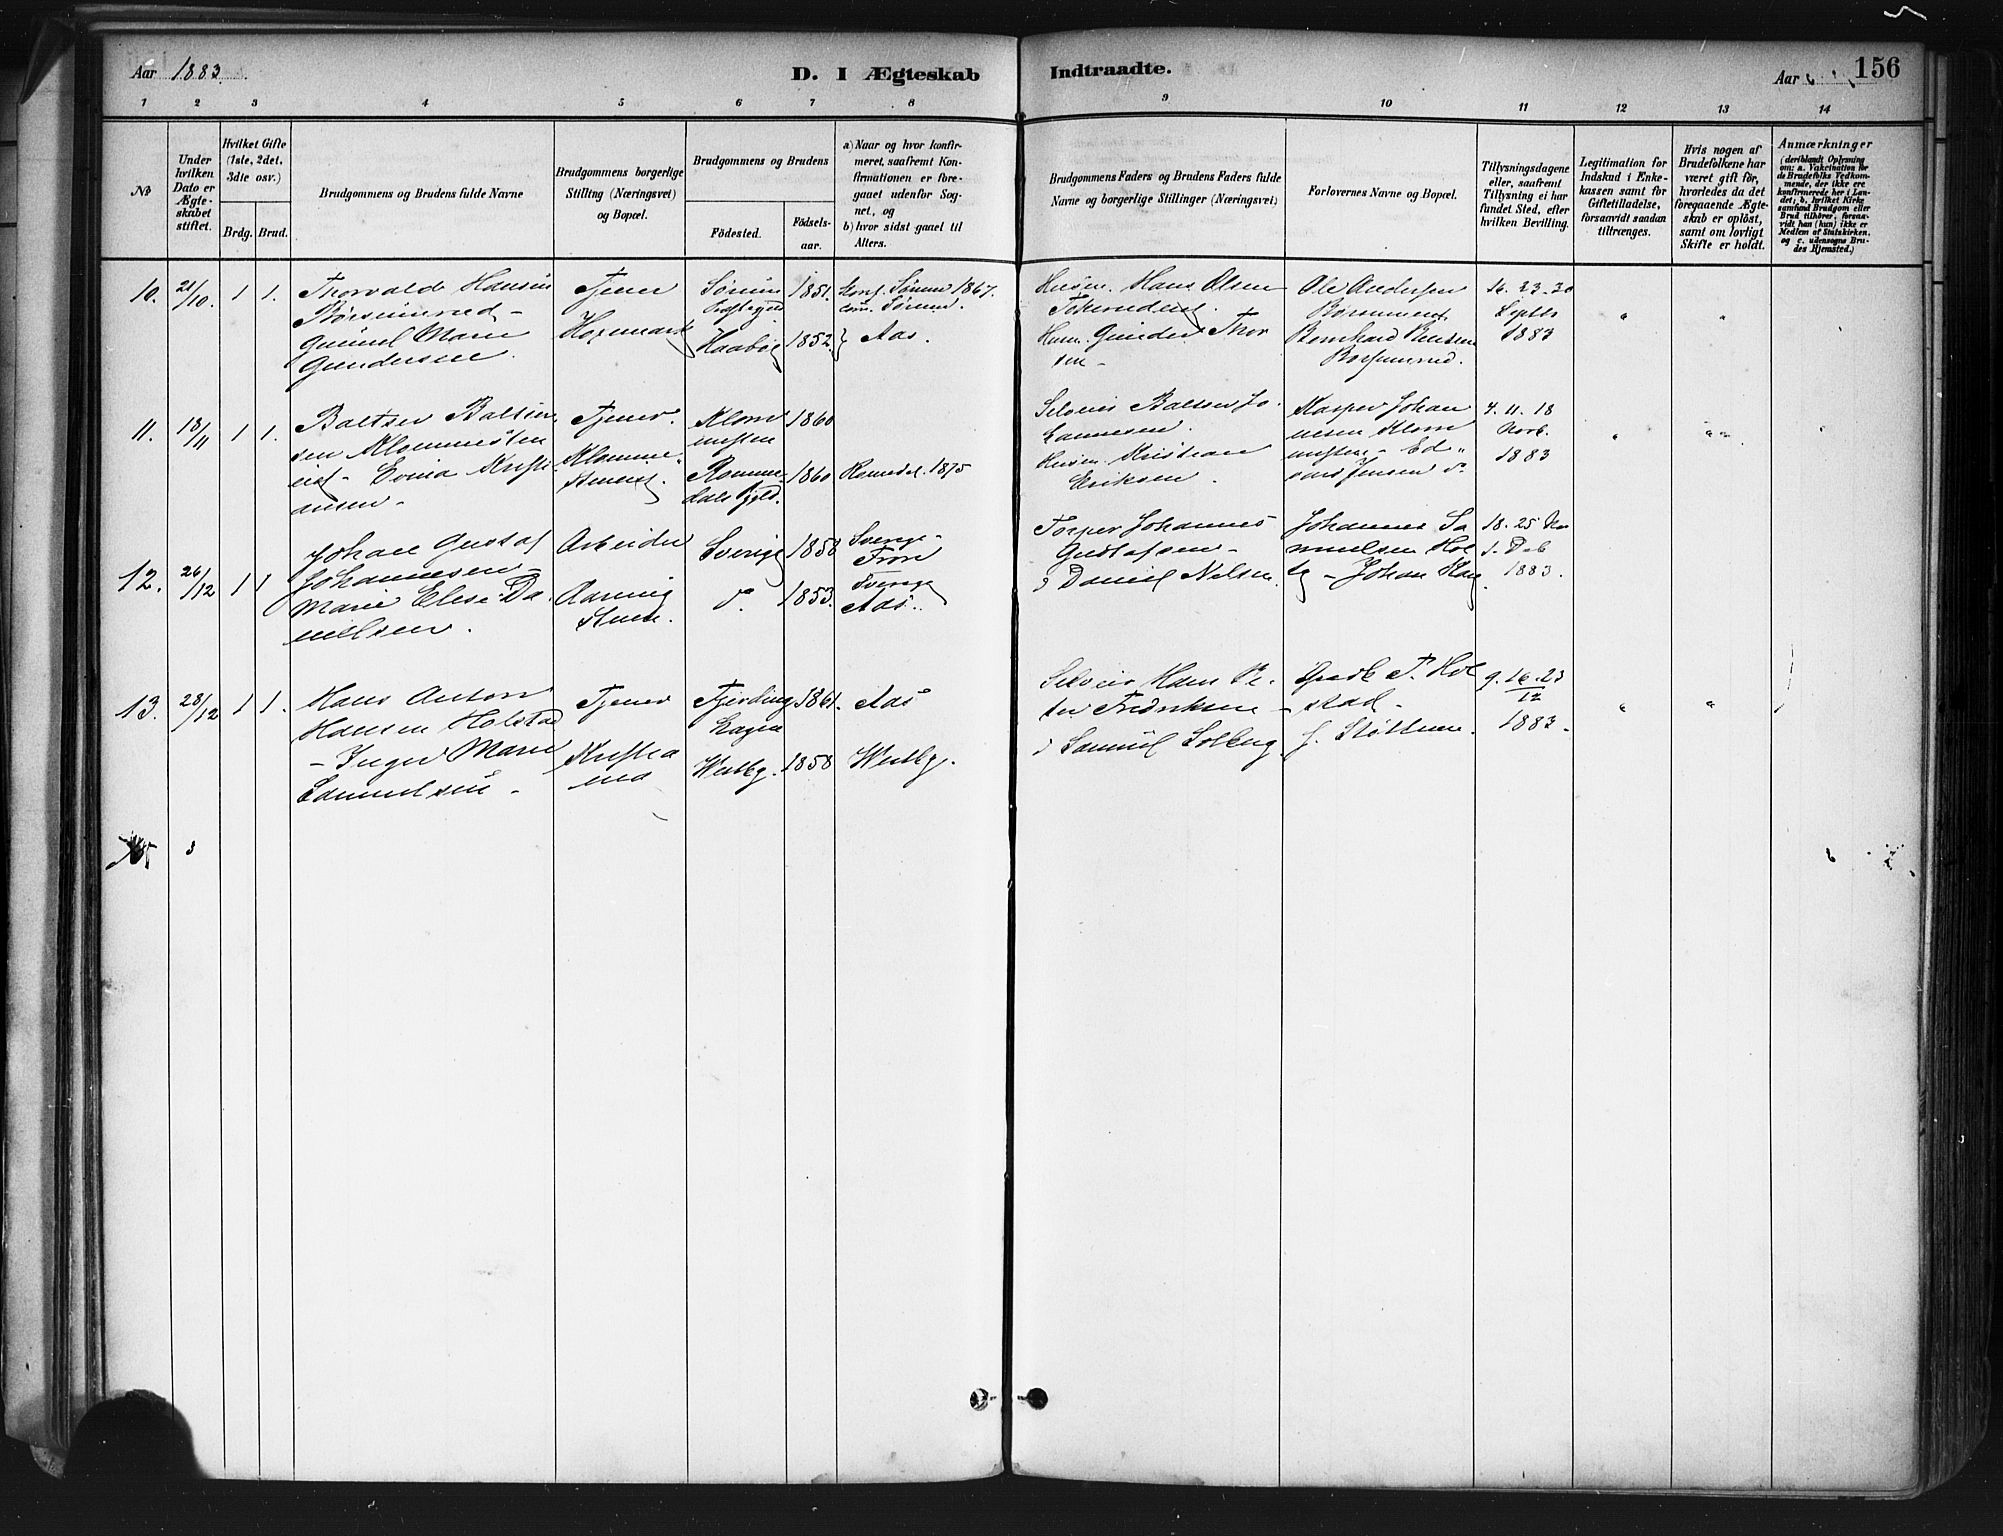 Aar 1883.
D. I Ægteskab Indtraadte.
Aar 156
1 2 3 4 5 6 7 8 9 10 11 12 13 14
No
Under hvilken Dato er Ægteskabet stiftet.
Hvilket Gifte (1ste, 2det, 3die osv.)
Brdg. Brud.
Brudgommens og Brudens fulde Navne
Brudgommens borgerlige Stilling (Næringsvei) og Bopæl.
Brudgommens og Brudens
Födested.
Födsels-aar.
a) Naar og hvor konfirmeret, saafremt Konfirmationen er foregaaet udenför Sognet, og
b) hvor sidst gaaet til Alters.
Brudgommens Faders og Brudens Faders fulde Navne og borgerlige Stillinger (Næringsvei)
Forlovernes Navne og Bopæl.
Tillysningsdagene eller, saafremt Tillysning ei har fundet Sted, efter hvilken Bevilling.
Legitimation for Indskud i Enkekassen samt for Giftetilladelse, forsaavidt saadan tiltrænges.
Hvis nogen af Brudefolkene har været gift för, hvorledes da det foregaaende Ægteskab er oplöst, samt om lovligt Skifte er holdt.
Anmærkninger
(deriblandt Oplysning om: a. Vakcination for de Brudefolks Vedkommende, der ikke ere konfirmerede her i Landet; b. hvilket Kirkesamfund Brudgom eller Brud tilhörer, forsaavidt han (hun) ikke er Medlem af Statskirken, og c. udensogns Brudes Hjemsted.)
10. 21/10. 1 1. Thorvald Hansen
Gunnil Marie
Gundersen.
Tjener
Sörum 1851.
Haabøl 1852.
Konf. Sörum 1867.
Com. Sörum.
Aas.
Husm. Hans Olsen
Husm. Gunder Thorsen -
Ole Andersen
Bernhard
16. 23. 30
Septb
1883
11. 18/11 1 1. Baltser Baltsersen Klommesten
eiet - Evina Kristiansen -
Tjener.
Klommesten
Klommesten 1860
Rommedals Pgld. 1860
Romedal. 1875
Selveier Baltser Johannesen.
Husm. Kristian
Eriksen.
Kasper Johannesen Klommesten - Edvard Jensen do
4. 11. 18
Novb.
1883
12. 26/12 1 1 Johan Gustaf
Johannesen -
Marie Elise Danielsen.
Arbeider
Sverige 1858
do. 1853.
Sverige -
Fron
Sverige
Aas.
Torper Johannes
Gustafsen -
Daniel Nilsen
Johannes Samuelsen Holtg - Johan
18. 25 Nov
1. Deb
1883.
13. 28/12 1 1. Hans Anton
Hansen Holstad
- Inger Marie
Samuelsen -
Tjener
Kristiania
Fjerdingbagen 1861. Aas
Westby. 1858 Westby.
Selveier Hans Peter Fredriksen -
Samuel Solberg.
Gaardb. P. Holstad -
9. 16. 23
12
1883.